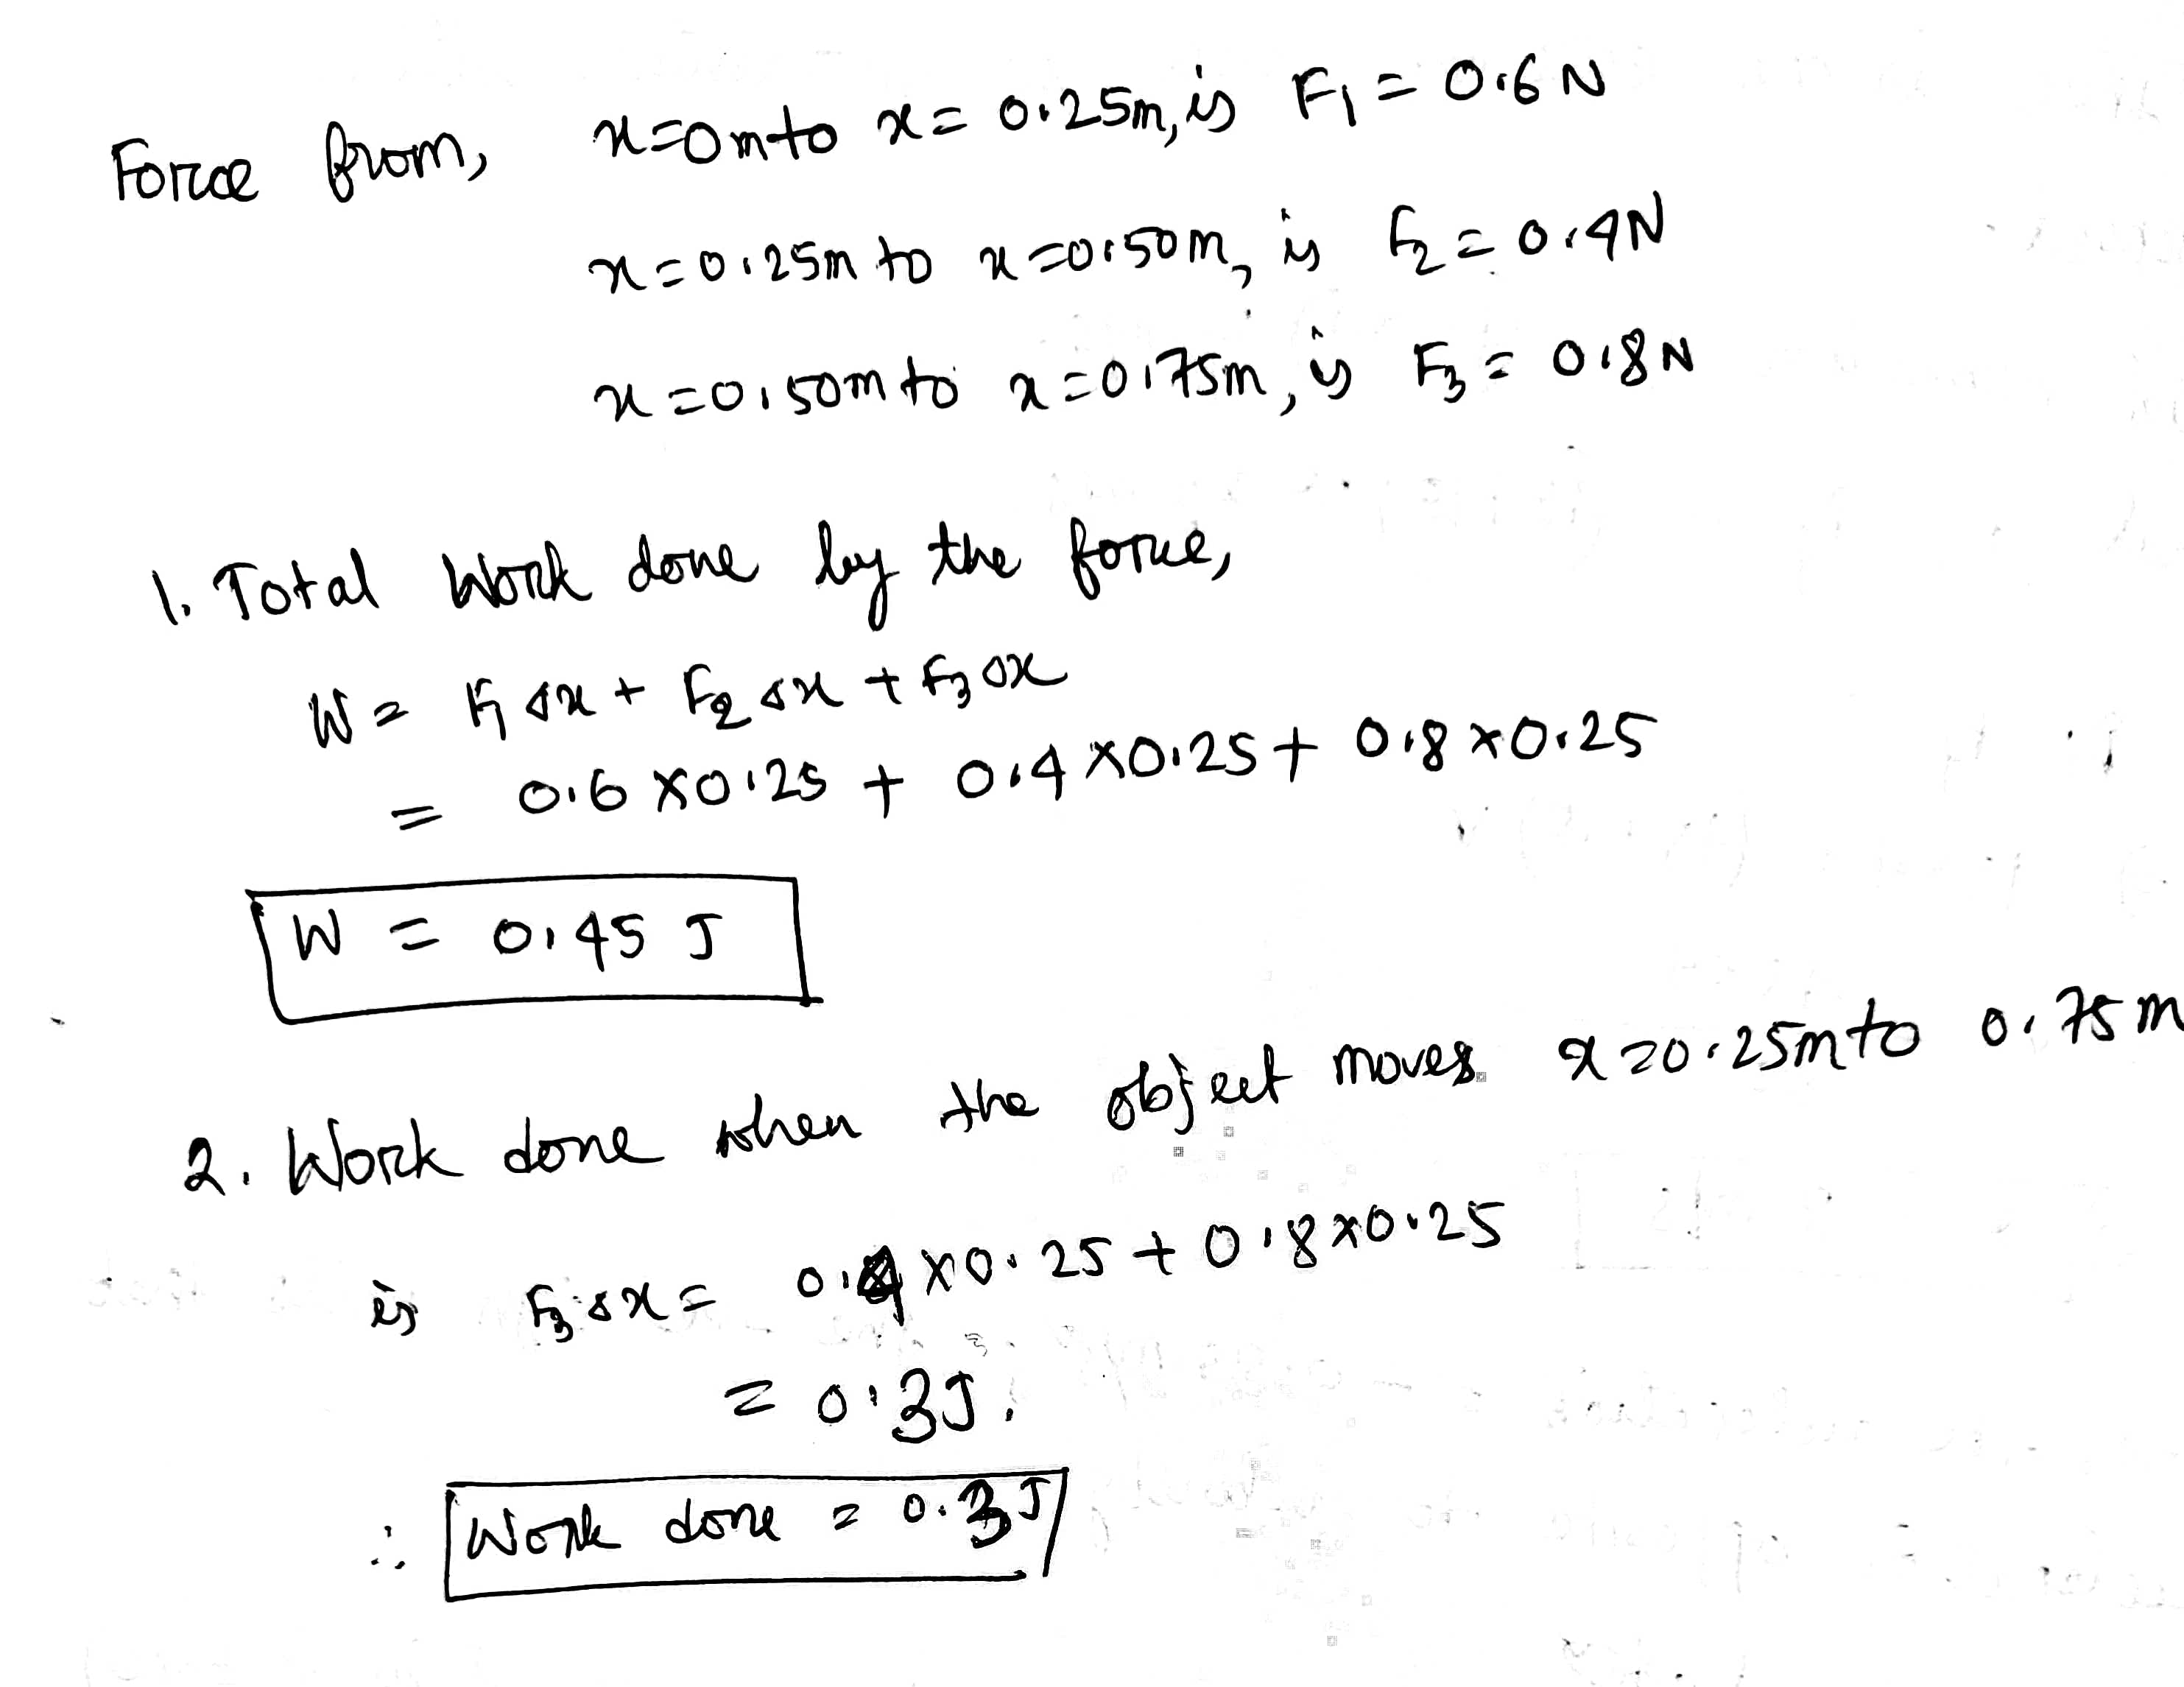 Force from, x=0m to x = 0.25m, is F₁ = 0.6 N
x=0.25m to x=0.50m, is F₂ = 0.4N
x=0.50m to x=0.75m, is F₃ = 0.8N
1. Total Work done by the force,
W = F₁ Δx + F₂ Δx + F₃ Δx
= 0.6 × 0.25 + 0.4 × 0.25 + 0.8 × 0.25
W = 0.45 J
2. Work done when the object moves x=0.25m to 0.75m
is F₃ Δx = 0.4 × 0.25 + 0.8×0.25
= 0.3J.
∴ Work done = 0.3J